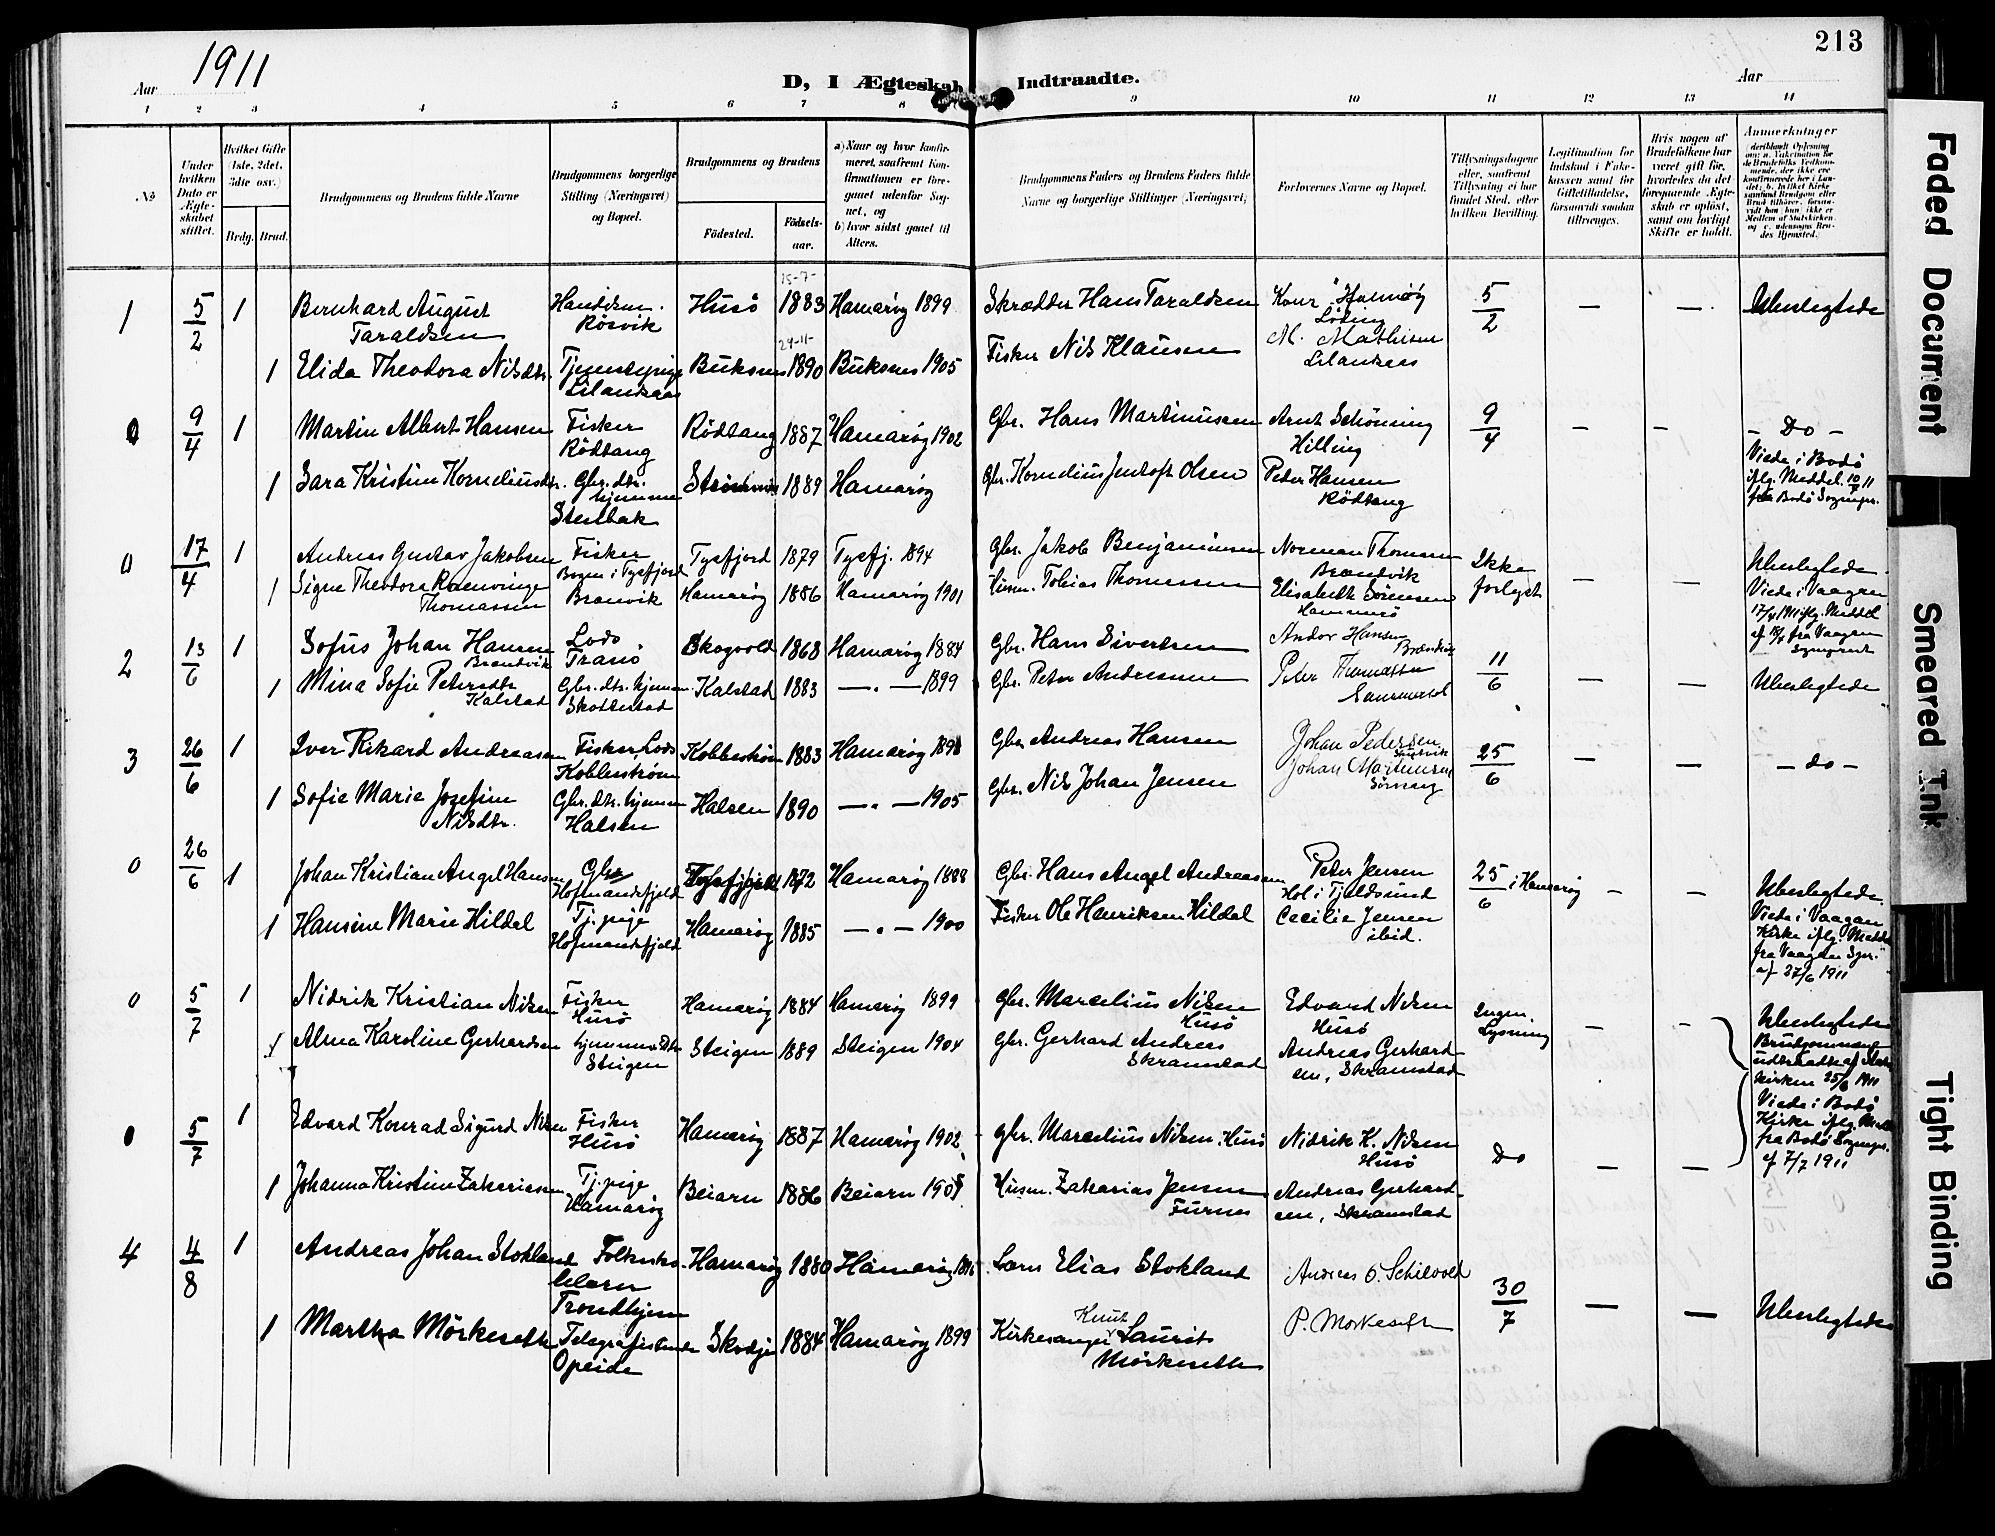 213
Aar 1911
D, I Ægteskab Indtraadte.
Aar
1 2 3 4 5 6 7 8 9 10 11 12 13 14
No
Under hvilken Dato er Ægteskabet stiftet.
Hvilket Gifte (1ste, 2det, 3die osv.)
Brdg. Brud.
Brudgommens og Brudens fulde Navne
Brudgommens borgerlige Stilling (Næringsvei) og Bopæl.
Brudgommens og Brudens
Fødested.
Fødselsaar.
a) Naar og hvor konfirmeret, saafremt Konfirmationen er foregaaet udenfor Sognet, og
b) hvor sidst gaaet til Alters.
Brudgommens Faders og Brudens Faders fulde Navne og borgerlige Stillinger (Næringsvei)
Forlovernes Navne og Bopæl.
Tillysningsdagene eller, saafremt Tillysning ei har fundet Sted, efter hvilken Bevilling.
Legitimation for Indskud i Enkekassen samt for Giftetilladelse, forsaavidt saadan tiltrænges.
Hvis nogen af Brudefolkene har været gift før, hvorledes da det foregaaende Ægteskab er opløst, samt om lovligt Skifte er holdt.
Anmerkninger
1 5/2 1 Bernhard August Taraldsen Røsvik Husö 15-7- 1883 Hamarøy 1899 Skrædder Hans Taraldsen Løding 5/2 — — Ubeslegtede
1 Elida Theodora Nilsdtr. Tjenestepige Buksnes 24-11- 1890 Buksnes 1905 Fisker Nils Klausen M. Mathisen
0 9/4 1 Martin Albert Hansen Fisker Rödtang Rödtang 1887 Hamarøy 1902 Gbr. Hans Martinussen Arnt Schönning Hilling 9/4 — — — Do —
1 Sara Kristine Korneliusdtr. Gbr. dtr. hjemme Stenbak 1889 Hamarøy Gbr. Kornelius Jentoft Olsen Peder Hansen Rödtang Viede i Bodö iflg. Meddel. 10/7 11 fra Bodö Sognepr.
0 17/4 1 Andreas Gustav Jakobsen Fisker Bogen i Tysfjord Tysfjord 1879 Tysfj. 1894 Gbr. Jakob Benjaminsen Norman Thomassen Brandvik Ikke forlyst — — Ubeslegtede
1 Signe Theodora Thomassen Hamarøy 1886 Hamarøy 1901 Husm. Tobias Thomassen Elisabeth Sörensen Viede i Vaagan
2 13/6 1 Sofus Johan Hansen Brandvik Lods Tranö Skogvold 1868 Hamarøy 1884 Gbr. Hans Sivertsen Andor Hansen
1 Mina Sofie Petersdtr. Kalstad Gbr. dtr. hjemme Skottestad Kalstad 1883 —"— 1899 Gbr. Peter Andreassen Peter Thomassen 11/6 — — Ubeslegtede
3 26/6 1 Iver Rikard Andreassen Fisker Lods Hamarøy 1898 1883 Gbr. Andreas Hansen Johan Pedersen 25/6 — — — do —
1 Sofie Marie Josefine Nilsdtr. Gbr. dtr. hjemme Halsen Halsen 1890 —"— 1905 Gbr. Nils Johan Jensen Johan Martinsen
0 26/6 1 Johan Kristian Angel Hansen Gbr. Hofmandsfjeld 1872 Hamarøy 1888 Gbr. Hans Angel Andreassen Peter Jensen Hol i Tjeldsund 25/6 i Hamarøy — — Ubeslegtede.
1 Hansine Marie Hildal Tj. pige Hofmandsfjeld Hamarøy 1885 —"— 1900 Fisker Ole Henriksen Hildal Cecilie Jensen ibid. Viede i Vaagan Kirke iflg. Medd. fra Vaagan Spr. af 27/6 1911
0 5/7 1 Nidrik Kristian Nilsen Fisker Husö Hamarøy 1884 Hamarøy 1899 Gbr. Marcelius Nilsen Husö Edvard Nilsen Husö Ingen Lysning — — Ubeslegtede
1 Alma Karoline Gerhardsen hjemmev. Dtr. Steigen Steigen 1889 Steigen 1904 Gbr. Gerhard Andreas Skramstad Andreas Gerhardsen, Skramstad Brudgommene udtraadte af Statskirken 25/6 1911
0 5/7 1 Edvard Konrad Sigurd Nilsen Fisker Husö Hamarøy 1887 Hamarøy 1902 Gbr. Marcelius Nilsen Husö Nidrik K. Nilsen Husö Do — — Viede i Bodö Kirke iflg. Medd. fra Bodö Sognepr. af 7/7 1911
1 Johanna Kristine Zakariassen Tj. pige Hamarøy Beiarn 1886 Beiarn Husm. Zakarias Jensen Furnes Andreas Gerhardsen, Skramstad
4 4/8 1 Andreas Johan Stokland Trondhjem Hamarøy 1880 Hamarøy Elias Stokland 30/7 — — Ubeslegtede
1 Martha Mörkeseth Telegrafistinde Opeide Skodje 1884 Hamarøy 1899 Kirkesanger Knut Laurits Mörkeseth P. Mörkeseth
Faded Document
Smeared Ink
Tight Binding